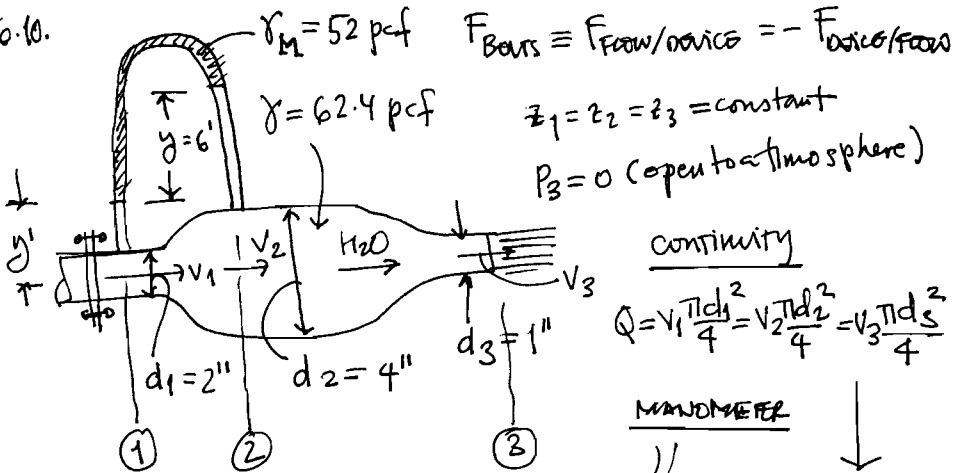 6.10.
γM = 52 pcf
F_Bolts ≡ F_Flow/device = - F_device/flow
γ = 62.4 pcf
z1 = z2 = z3 = constant
y = 6'
P3 = 0 (open to atmosphere)
y'
continuity
V1
V2
H2O
V3
Q = V1 πd1²/4 = V2 πd2²/4 = V3 πd3²/4
d1 = 2"
d2 = 4"
d3 = 1"
MANOMETER
1
2
3